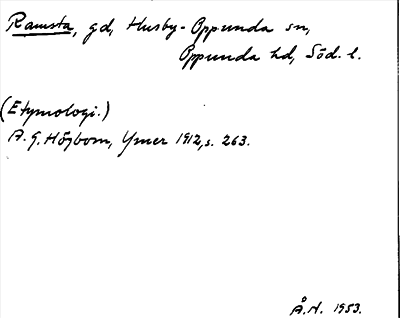 Ramsta, gd, Husby-Oppunda sn,
Oppunda hd, Söd. l.
(Etymologi.)
A. G. Högbom, Ymer 1912, s. 263.
Å.N. 1953.